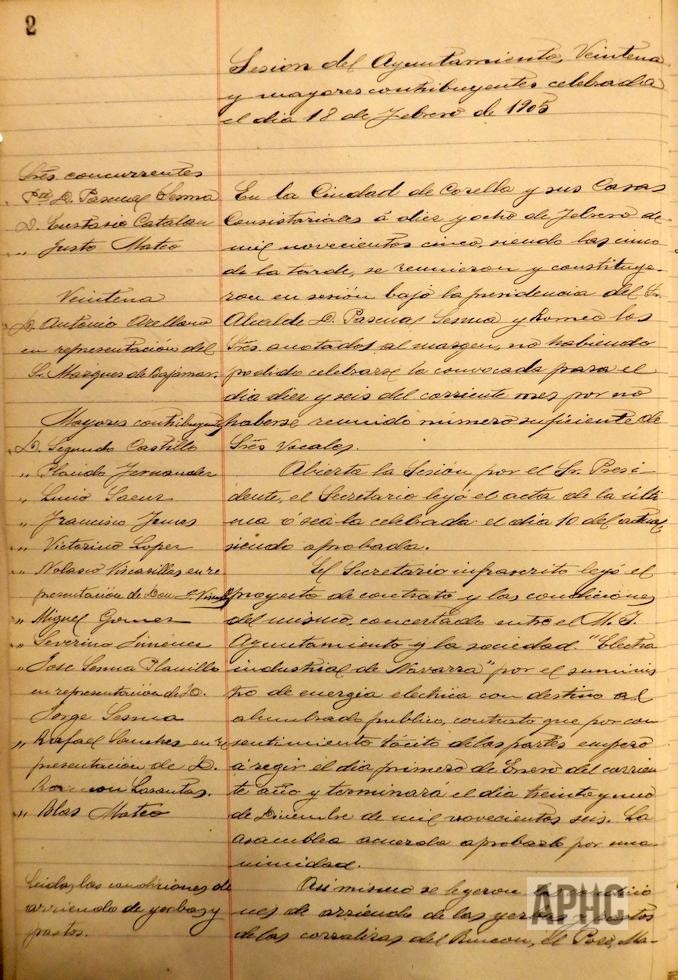 2
Sesion del Ayuntamiento, Veintena
y mayores contribuyentes celebrada
el dia 18 de Febrero de 1905
Sres. concurrentes
Pte D. Pascual Sesma
D. Eustasio Catalan
" Justo Mateo
Veintena
D. Antonio Arellano
en representación del
Sr. Marques de Bajamar.
Mayores contribuyentes
D. Segundo Castillo
" Placido Fernandez
" Lucio Saenz
" Francisco
" Victorino Lopez
" Nolasco Viscasillas en re
presentacion de Don
" Miguel Gomez
" Severino Jimenez
" José Sesma Planillo
en representación de D.
Jorge Sesma
" Rafael Sanchez en re
presentación de D.
Ramon Lasantas.
" Blas Mateo
Leidas las condiciones de
arriendo de yerbas y
pastos.
En la Ciudad de Corella y sus Casas
Consistoriales á diez y ocho de Febrero de
mil novecientos cinco, siendo las cinco
de la tarde, se reunieron y constituye-
ron en sesión bajo la presidencia del Sr.
Alcalde D. Pascual Sesma y Romeo los
Sres. anotados al margen, no habiendo
podido celebrarse la convocada para el
dia diez y seis del corriente mes por no
haberse reunido número suficiente de
Sres Vocales.
Abierta la Sesión por el Sr. Presi-
dente, el Secretario leyó el acta de la últi
ma ó sea la celebrada el dia 10 del actual
siendo aprobada.
El Secretario infrascrito leyó el
proyecto de contrato y las condiciones
del mismo, concertado entre el M. I.
Ayuntamiento y la sociedad "Electra
industrial de Navarra" por el suminis
tro de energia electrica con destino al
alumbrado publico, contrato que por con
sentimiento tácito de las partes empezó
á regir el dia primero de Enero del corrien
te año y terminará el dia treinta y uno
de Diciembre de mil novecientos seis. La
asamblea acuerda aprobarlo por una
nimidad.
Asi mismo se leyeron las condicio
nes de arriendo de las yerbas y pastos
de las corralizas del Rincon, el Pozo, Ma-
APHC